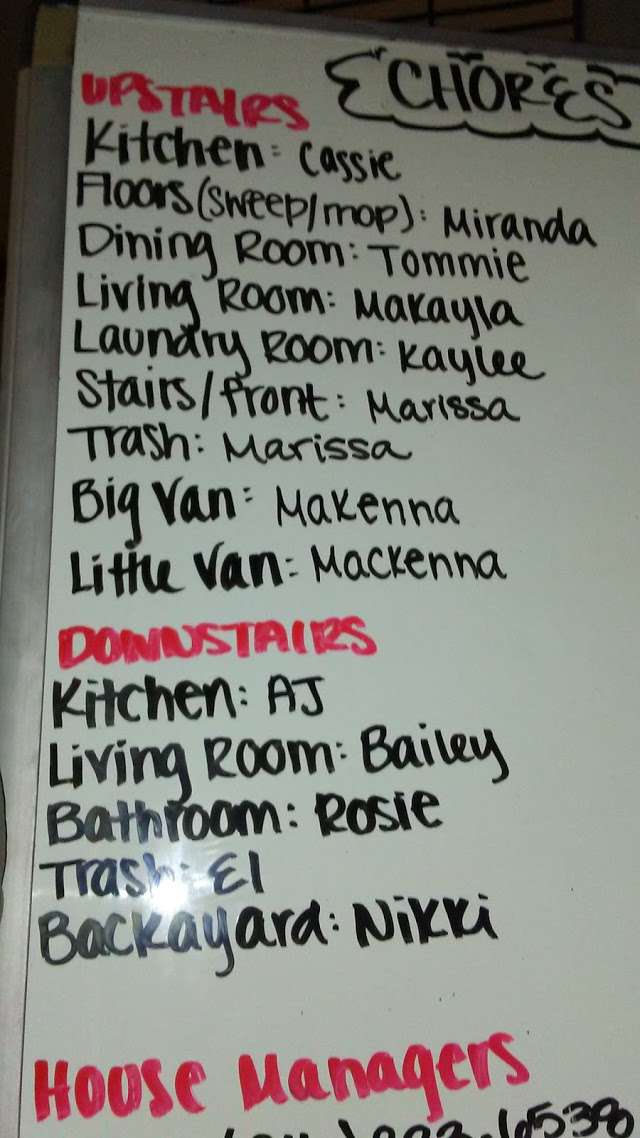 CHORES
UPSTAIRS
Kitchen: Cassie
Floors (sweep/mop): Miranda
Dining Room: Tommie
Living Room: Makayla
Laundry Room: Kaylee
Stairs/front: Marissa
Trash: Marissa
Big Van: Makenna
Little Van: Mackenna
DOWNSTAIRS
Kitchen: AJ
Living Room: Bailey
Bathroom: Rosie
Trash: El
Backayard: Nikki
House Managers